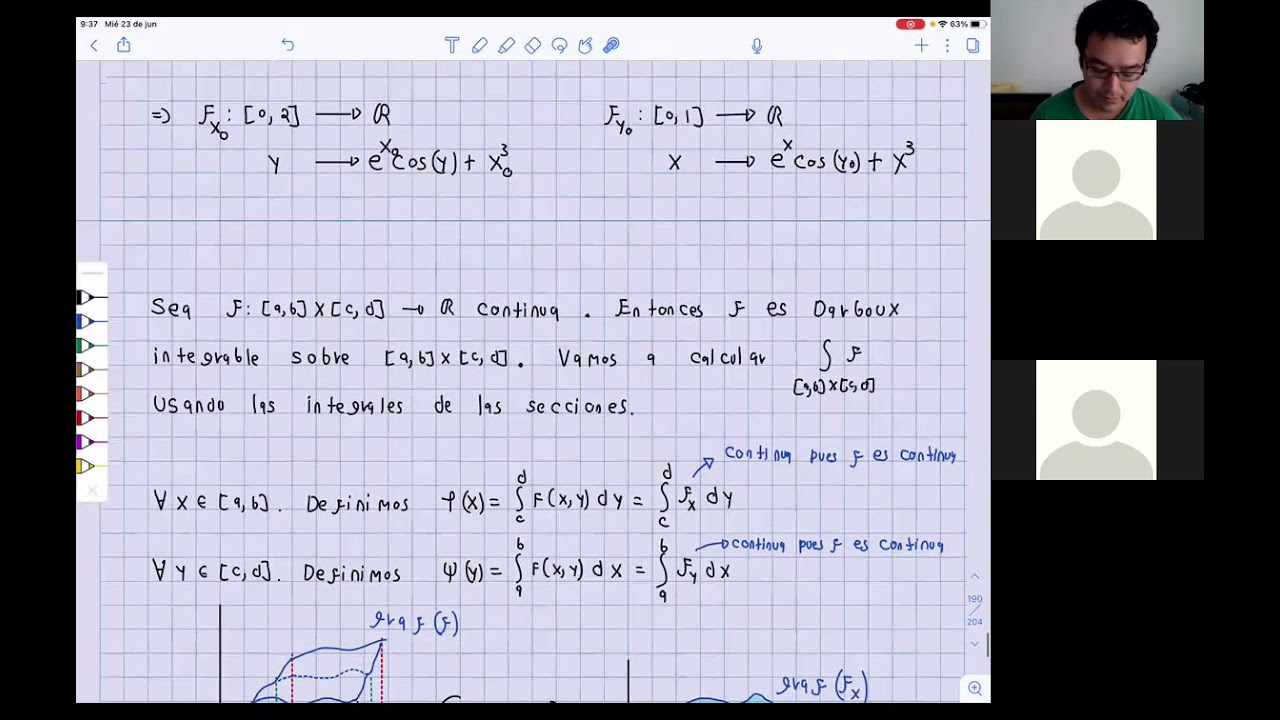 9:37 Mié 23 de jun
63%
=> F_{x_0} : [0, 2] → ℝ
y → e^{x_0} cos(y) + x_0^3
F_{y_0} : [0, 1] → ℝ
x → e^x cos(y_0) + x^3
Sea F : [a,b] × [c,d] → ℝ continua . Entonces F es Darboux
integrable sobre [a,b] × [c,d]. Vamos a calcular ∫_{[a,b]×[c,d]} F
Usando las integrales de las secciones.
continua pues F es continua
∀ x ∈ [a,b]. Definimos φ(x) = ∫_c^d F(x,y) dy = ∫_c^d F_x dy
continua pues F es continua
∀ y ∈ [c,d]. Definimos ψ(y) = ∫_a^b F(x,y) dx = ∫_a^b F_y dx
graf(F)
graf(F_x)
190
/
204